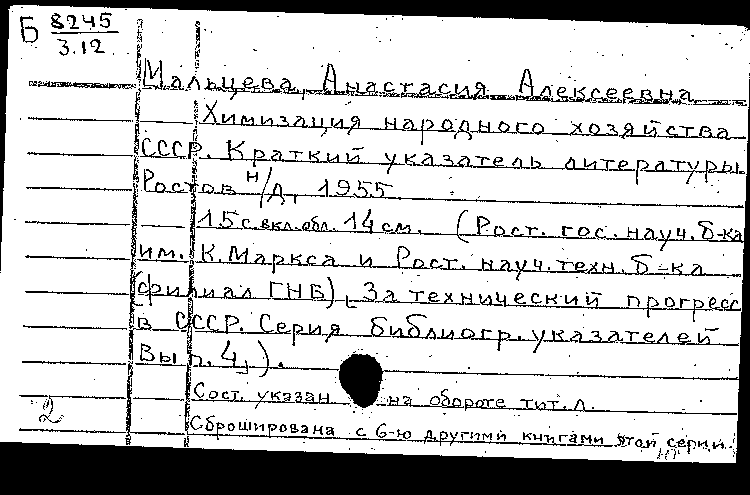 Б 8245
3.12
Мальцева, Анастасия Алексеевна
Химизация народного хозяйства
СССР. Краткий указатель литературы
Ростов н/Д, 1955.
15 с. вкл. обл. 14 см. (Рост. гос. науч. б-ка
им. К. Маркса и Рост. науч. техн. б-ка
(филиал ГНБ), За технический прогресс
в СССР. Серия библиогр. указателей
Вып. 4,).
Сост. указан на обороте тит. л.
2
Сброширована с 6-ю другими книгами этой серии.